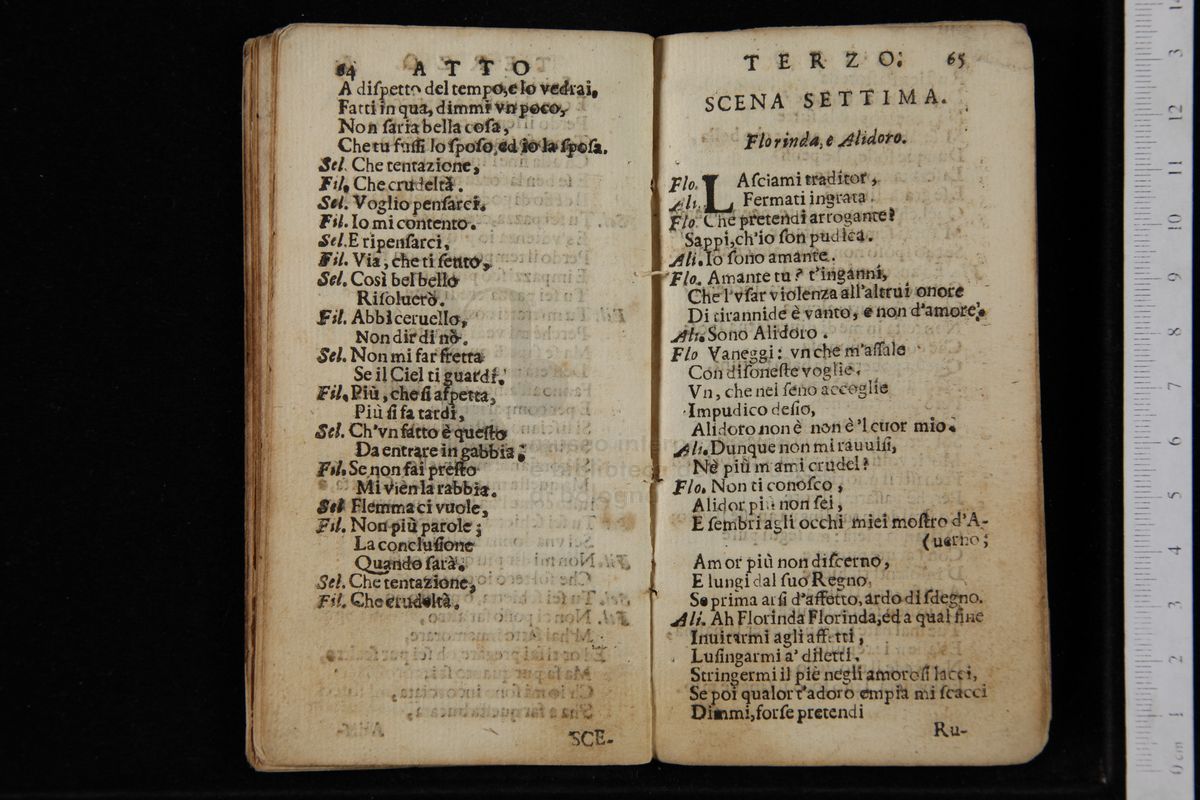 64 ATTO
A diſpetto del tempo, e lo vedrai,
Fatti in qua, dimmi vn poco,
Non ſaria bella coſa,
Che tu fuſſi lo ſpoſo, ed io la ſpoſa.
Sel. Che tentazione,
Fil. Che crudeltà.
Sel. Voglio penſarci.
Fil. Io mi contento.
Sel. E ripenſarci,
Fil. Via, che ti ſento,
Sel. Così bel bello
Riſoluerò.
Fil. Abbi ceruello,
Non dir di nò.
Sel. Non mi far fretta
Se il Ciel ti guardi.
Fil. Più, che ſi aſpetta,
Più ſi fa tardi,
Sel. Ch'vn fatto è queſto
Da entrare in gabbia;
Fil. Se non fai preſto
Mi vien la rabbia.
Sel Flemma ci vuole,
Fil. Non più parole;
La concluſione
Quando ſarà.
Sel. Che tentazione,
Fil. Che crudeltà.
SCE-
TERZO. 65
SCENA SETTIMA.
Florinda, e Alidoro.
Flo. LAſciami traditor,
Ali. Fermati ingrata.
Flo. Che pretendi arrogante?
Sappi, ch'io ſon pudica.
Ali. Io ſono amante.
Flo. Amante tu? t'inganni,
Che l'vſar violenza all'altrui onore
Di tirannide è vanto, e non d'amore.
Ali. Sono Alidoro.
Flo Vaneggi: vn che m'aſſale
Con diſoneſte voglie,
Vn, che nel ſeno accoglie
Impudico deſio,
Alidoro non è non è 'l cuor mio.
Ali. Dunque non mi rauuiſi,
Nè più m'ami crudel?
Flo. Non ti conoſco,
Alidor più non ſei,
E ſembri agli occhi miei moſtro d'A-
(uerno;
Amor più non diſcerno,
E lungi dal ſuo Regno,
Se prima arſi d'affetto, ardo di ſdegno.
Ali. Ah Florinda Florinda, ed a qual fine
Inuitarmi agli affetti,
Luſingarmi a' diletti,
Stringermi il piè negli amoroſi lacci,
Se poi qualor t'adoro empia mi ſcacci
Dimmi, forſe pretendi
Ru-